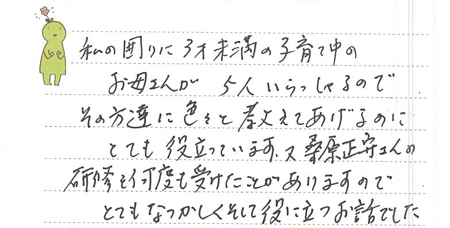 私の周りに3才未満の子育て中の
お母さんが 5人いらっしゃるので
その方達に色々と教えてあげるのに
とても役立っています。又桑原正守さんの
研修を何度も受けたことがありますので
とてもなつかしくそして役に立つお話でした